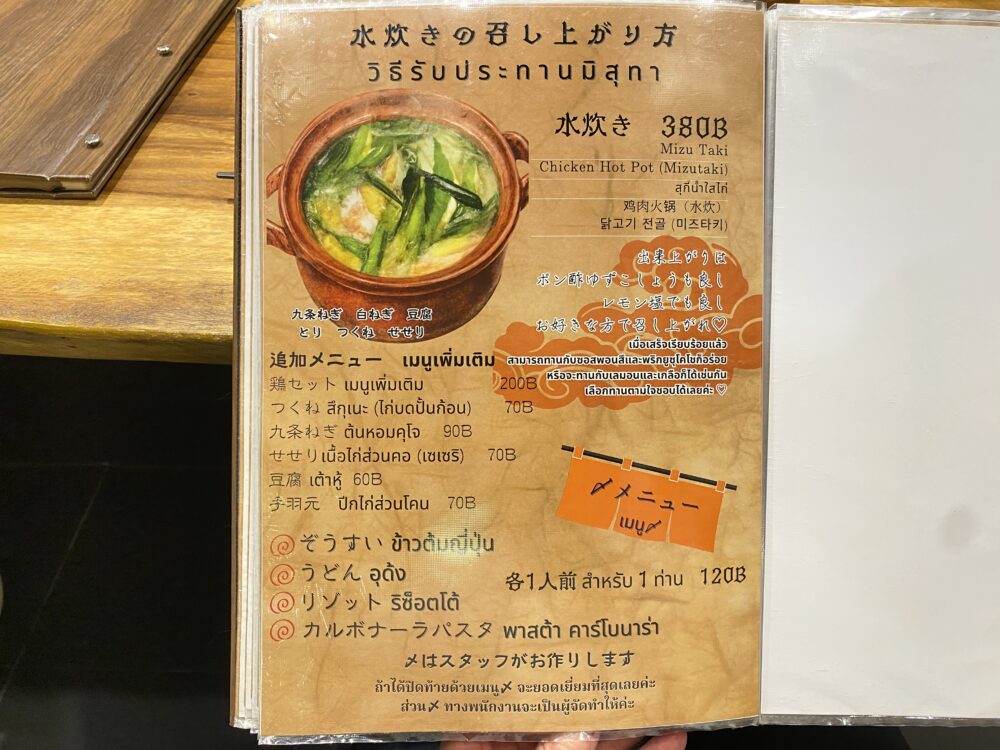 水炊きの召し上がり方
วิธีรับประทานมิสุทา
水炊き 380B
Mizu Taki
Chicken Hot Pot (Mizutaki)
สุกี้น้ำใสไก่
鸡肉火锅（水炊）
닭고기 전골 (미즈타키)
九条ねぎ 白ねぎ 豆腐
とり つくね せせり
出来上がりは
ポン酢ゆずこしょうも良し
レモン塩でも良し
お好きな方で召し上がれ♡
เมื่อเสร็จเรียบร้อยแล้ว
สามารถทานกับซอสพอนสึและพริกยูซุโคโชก็อร่อย
หรือจะทานกับเลมอนและเกลือก็ได้เช่นกัน
เลือกทานตามใจชอบได้เลยค่ะ ♡
追加メニュー เมนูเพิ่มเติม
鶏セット เมนูเพิ่มเติม 200B
つくね สึกุเนะ (ไก่บดปั้นก้อน) 70B
九条ねぎ ต้นหอมคุโจ 90B
せせり เนื้อไก่ส่วนคอ (เซเซริ) 70B
豆腐 เต้าหู้ 60B
手羽元 ปีกไก่ส่วนโคน 70B
〆メニュー
เมนู〆
ぞうすい ข้าวต้มญี่ปุ่น
うどん อุด้ง
各1人前 สำหรับ 1 ท่าน 120B
リゾット ริซ็อตโต้
カルボナーラパスタ พาสต้า คาร์โบนาร่า
〆はスタッフがお作りします
ถ้าได้ปิดท้ายด้วยเมนู〆 จะยอดเยี่ยมที่สุดเลยค่ะ
ส่วน〆 ทางพนักงานจะเป็นผู้จัดทำให้ค่ะ